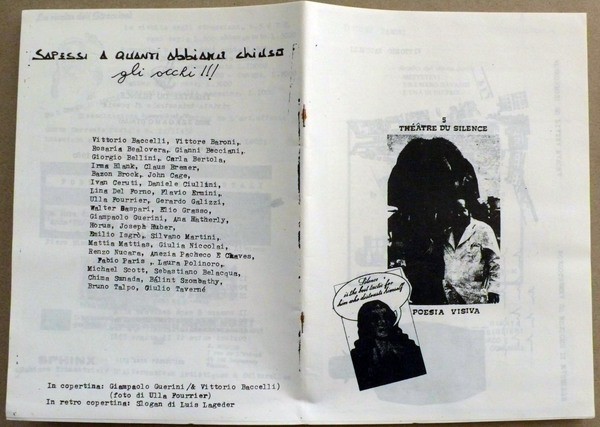 SAPESSI A QUANTI abbiamo chiuso
gli occhi!!!
Vittorio Baccelli, Vittore Baroni,
Rosaria Bealovera, Gianni Becciani,
Giorgio Bellini, Carla Bertola,
Irma Blank, Claus Bremer,
Bazon Brock, John Cage,
Ivan Ceruti, Daniele Ciullini,
Lina Del Forno, Flavio Ermini,
Ulla Fourrier, Gerardo Galizzi,
Walter Gaspari, Elio Grasso,
Giampaolo Guerini, Ana Hatherly,
Horus, Joseph Huber,
Emilio Isgrò, Silvano Martini,
Mattia Mattias, Giulia Niccolai,
Renzo Nucara, Anezia Pacheco E Chaves,
Fabio Paris, Laura Polinoro,
Michael Scott, Sebastiano Belacqua,
Chima Sunada, Bálint Szombathy,
Bruno Talpo, Giulio Taverné
In copertina: Giampaolo Guerini/& Vittorio Baccelli)
(foto di Ulla Fourrier)
In retro copertina: Slogan di Luis Lageder
5
THÉÂTRE DU SILENCE
Silence
is the best tactic for
him who distrusts himself
POESIA VISIVA